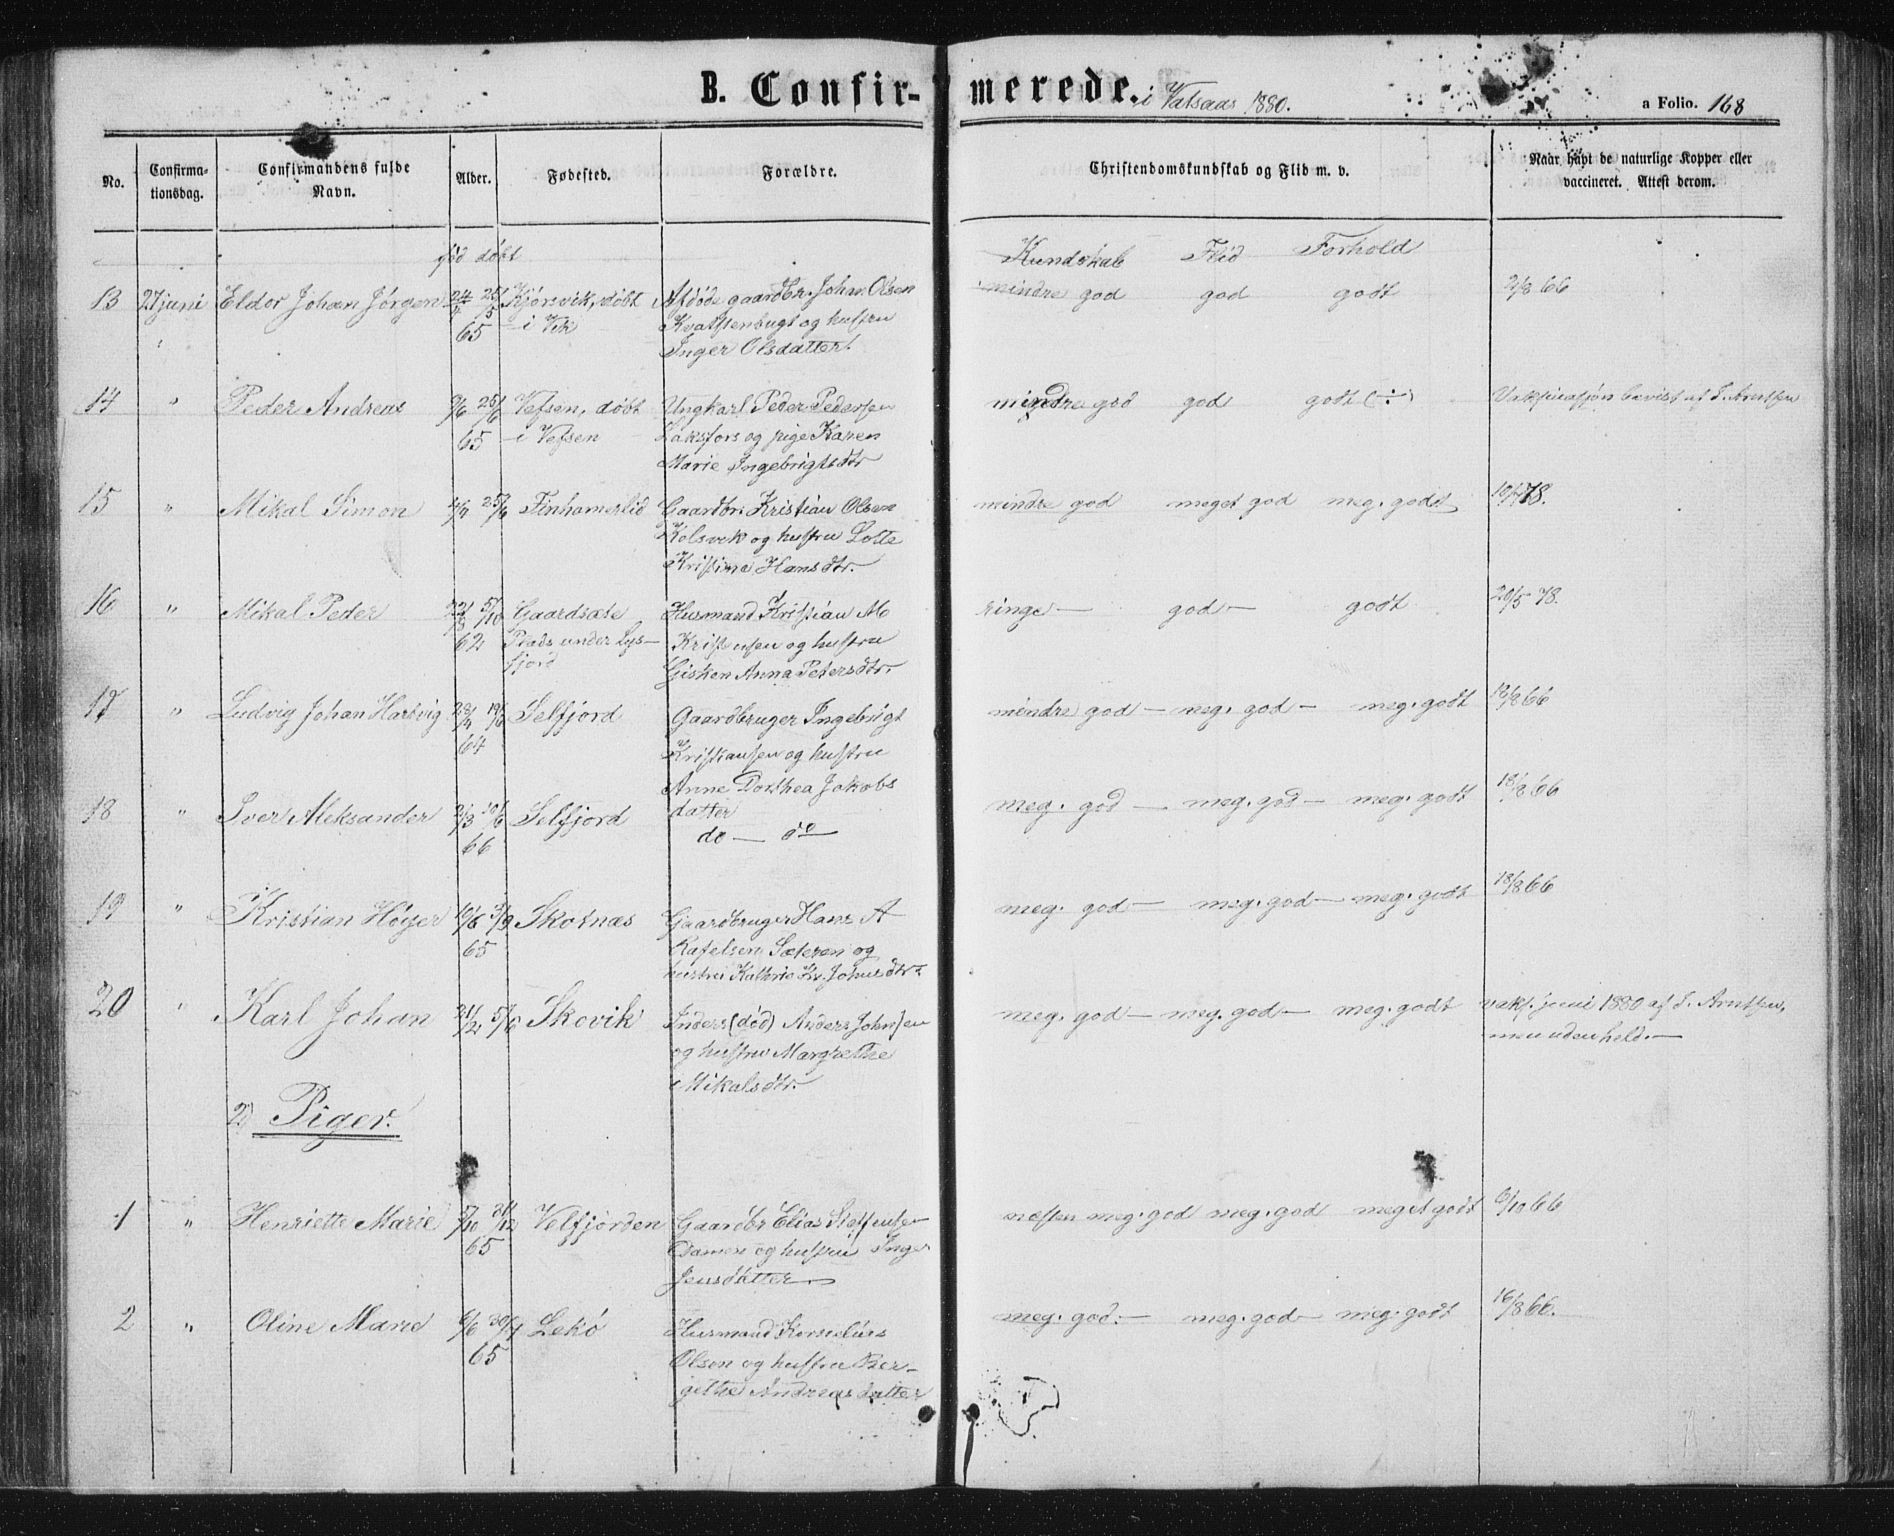 B. Confirmerede. i Vatsaas 1880.
a Folio. 168
No.
Confirma-
tionsdag.
Confirmandens fulde
Navn.
Alder.
Fødested.
Forældre.
Christendomskundskab og Flid m. v.
Naar havt de naturlige Kopper eller
vaccineret. Attest derom.
fød døbt
Kundskab Flid Forhold
13 27 juni Eldor Johan Jørgen 24/4 25/5 Kjørsvik, døbt Afdøde gaardbr. Joh. Olsen mindre god god godt 2/8 66
65 i Vik og hustru
Inger Olsdatter.
14 " Peder Andreas 9/6 25/6 Vefsen, døbt Ungkarl Peder Pedersen mindre god god godt (÷) Vaksinasjon bevist af I. Arntsen
65 i Vefsen Laksfors og pige Karen
Marie Ingebrigtsdtr
15 " Mikal Simon 4/4 25/6 Finhamerlid Gaardbr. Kristian Olsen mindre god meget god meg. godt 78.
Kolsvik og hustru Lotte
Kristine Hansdtr.
16 " Mikal Peder 5/10 Gaardsæte Husmand Kristian M ringe — god — godt 20/5 78.
62 Plads under Lys- Kristensen og hustru
fjord Gisken Anna Petersdtr.
17 " Ludvig Johan Hartvig 28/4 19/6 Selfjord Gaardbruger Ingebrigt mindre god — meg. god — meg. godt 18/8 66
64 Kristiansen og hustru
Anne Dorthea Jakobs
datter
18 " Iver Aleksander 2/3 10/6 Selfjord do — do meg. god — meg. god — meg. godt 18/8 66
66
19 " Kristian Høyer 10/6 3/9 Skotnæs Gaardbruger Hans A meg. god — meg. god — meg. godt 18/8 66
65 Rafelsen Sæteren og
hustru
20 " Karl Johan 21/2 5/6 Skovik Inders (død) Anders Johnsen meg. god — meg. god — meg. godt vaks. juni 1880 af I. Arntsen,
og hustru Margrethe men uden held. —
Mikalsdtr.
2) Piger.
1 " Henriette Marie 5/10 31/12 Velfjorden Gaardbr Elias Steffensen næsten meg. god meg. god meget godt 6/10 66
65 og hustru Inger
Jensdatter
2 " Oline Marie 6/6 30/7 Lekø Husmand Kornelius meg. god. — meg. god — meg. godt 16/8 66.
65 Olsen og hustru Ber-
githe Andreasdatter